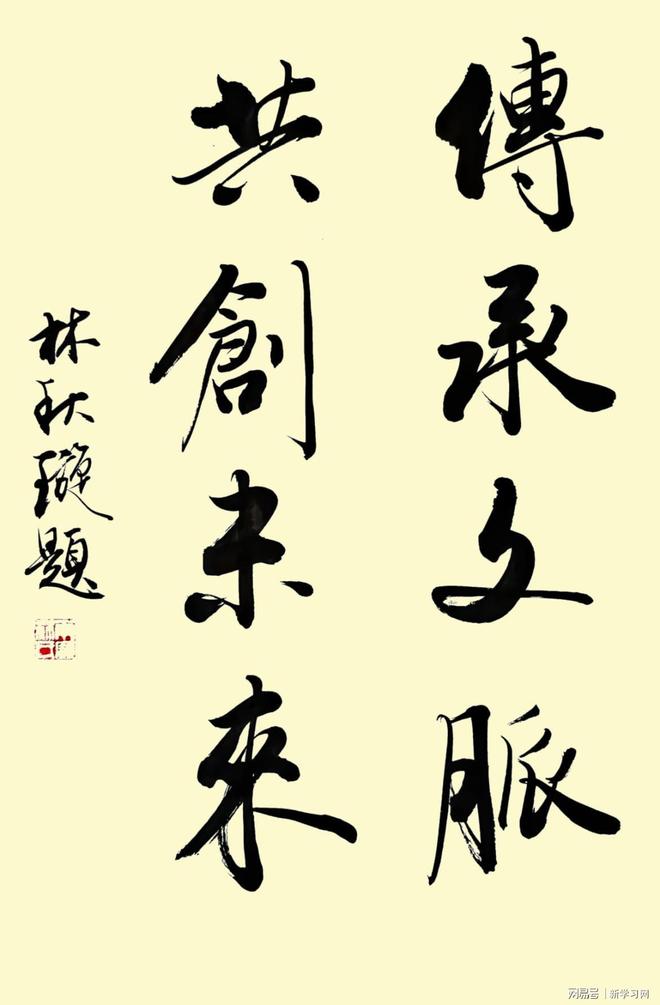 傳承文脈
共創未來
林秋璇題
网易号 | 新学习网